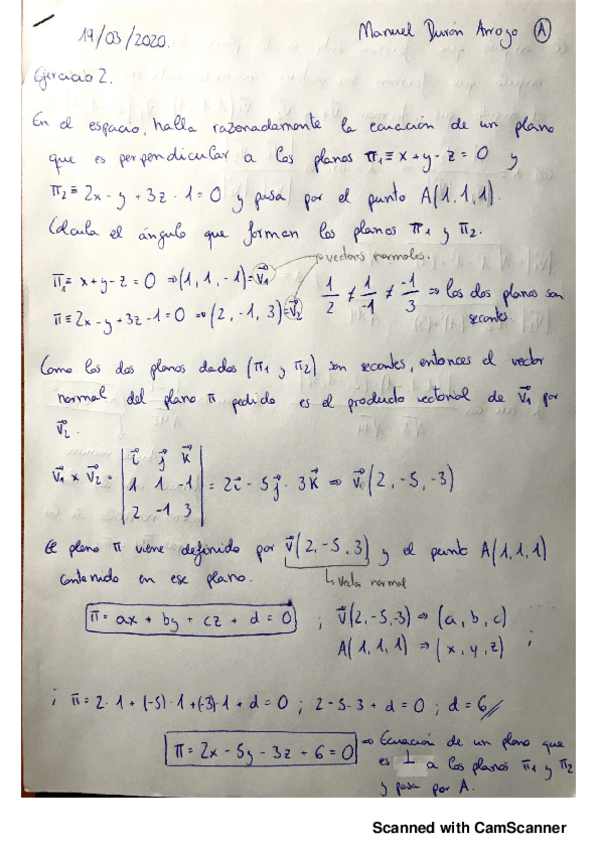 19/03/2020. Manuel Durán Arroyo (A)
Ejercicio 2.
En el espacio, halla razonadamente la ecuación de un plano
que es perpendicular a los planos π1 ≡ x + y - z = 0 y
π2 ≡ 2x - y + 3z - 1 = 0 y pasa por el punto A(1, 1, 1).
Calcula el ángulo que forman los planos π1 y π2.
vectores normales.
π1 ≡ x + y - z = 0 ⇒ (1, 1, -1) = v⃗1
π ≡ 2x - y + 3z - 1 = 0 ⇒ (2, -1, 3) = v⃗2
1/2 ≠ 1/-1 ≠ -1/3 ⇒ los dos planos son
secantes.
Como los dos planos dados (π1 y π2) son secantes, entonces el vector
normal del plano π pedido es el producto vectorial de v⃗1 por
v⃗2.
v⃗1 x v⃗2 = | i⃗ j⃗ k⃗ |
| 1 1 -1 | = 2i⃗ - 5j⃗ - 3k⃗ ⇒ v⃗(2, -5, -3)
| 2 -1 3 |
El plano π viene definido por v⃗(2, -5, 3) y el punto A(1, 1, 1)
contenido en ese plano. ↳ Vector normal
π = ax + by + cz + d = 0 ; v⃗(2, -5, -3) ⇒ (a, b, c)
A(1, 1, 1) ⇒ (x, y, z) ;
; π = 2 · 1 + (-5) · 1 + (-3) · 1 + d = 0 ; 2 - 5 - 3 + d = 0 ; d = 6 //
π = 2x - 5y - 3z + 6 = 0 ⇒ Ecuación de un plano que
es ⊥ a los planos π1 y π2
y pasa por A.
Scanned with CamScanner